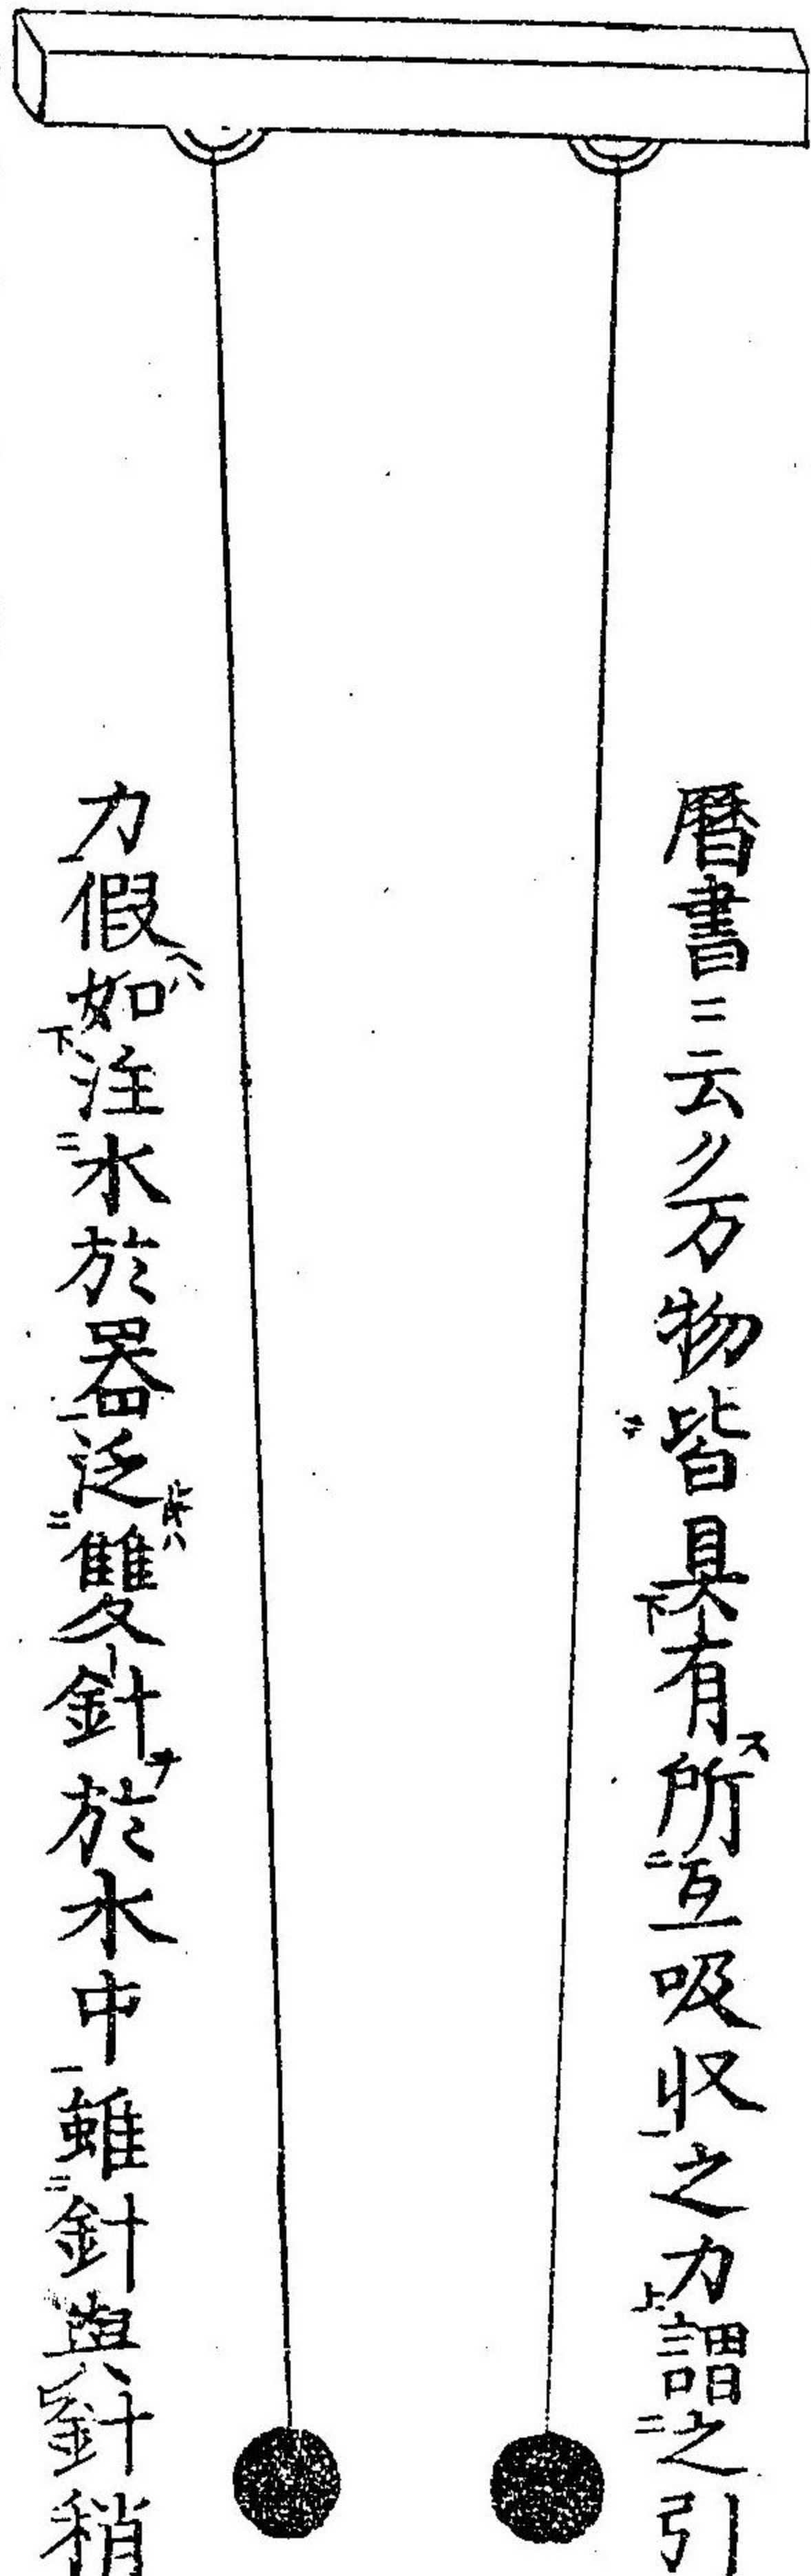 暦書ニ云ク万物皆具有所互吸収之力謂之引
力假如注水於器泛雙針於水中雖針與針稍